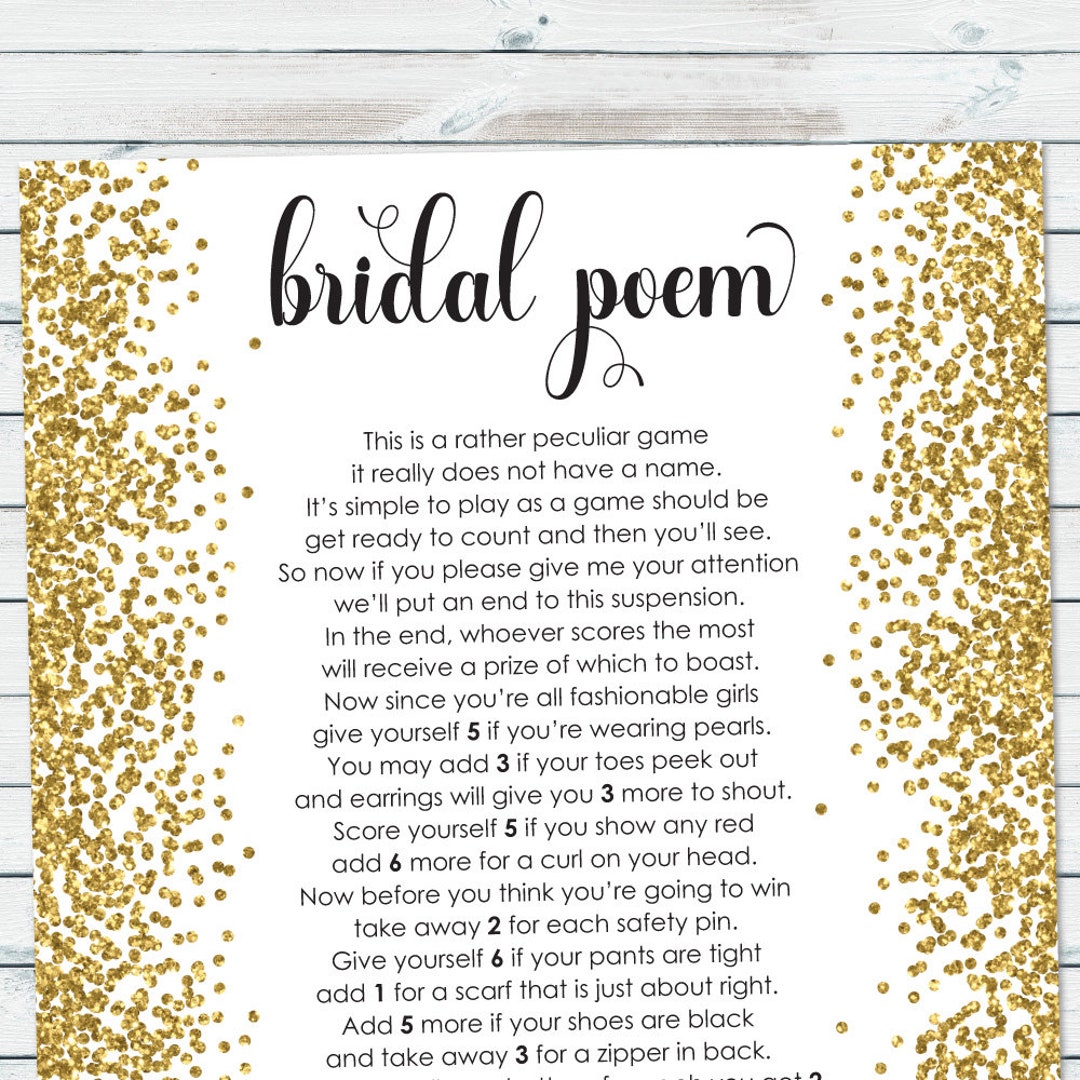 bridal poem
This is a rather peculiar game
it really does not have a name.
It's simple to play as a game should be
get ready to count and then you'll see.
So now if you please give me your attention
we'll put an end to this suspension.
In the end, whoever scores the most
will receive a prize of which to boast.
Now since you're all fashionable girls
give yourself 5 if you're wearing pearls.
You may add 3 if your toes peek out
and earrings will give you 3 more to shout.
Score yourself 5 if you show any red
add 6 more for a curl on your head.
Now before you think you're going to win
take away 2 for each safety pin.
Give yourself 6 if your pants are tight
add 1 for a scarf that is just about right.
Add 5 more if your shoes are black
and take away 3 for a zipper in back.